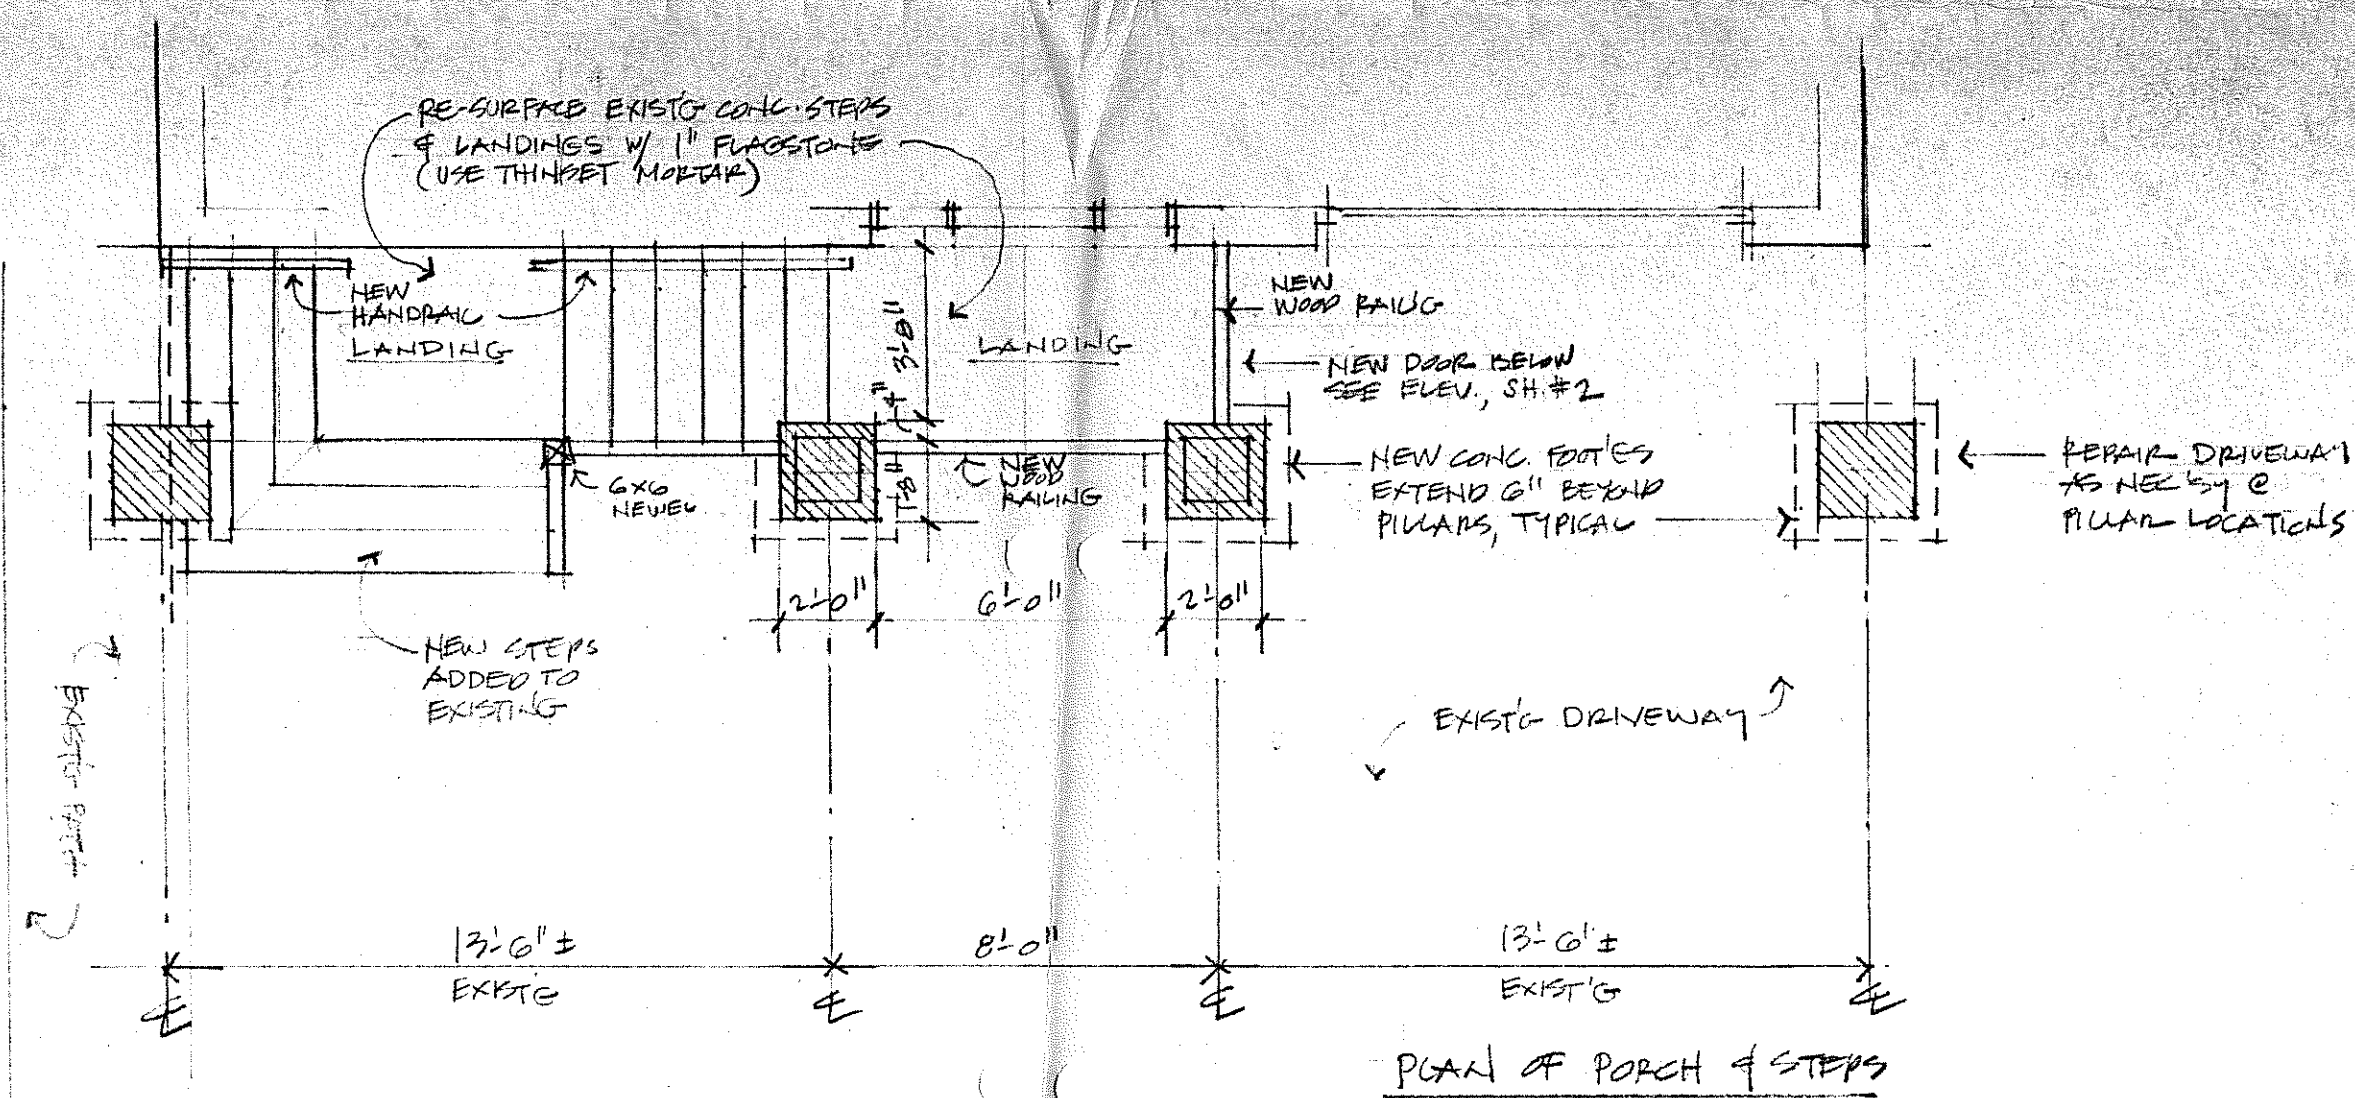 RE-SURFACE EXIST'G CONC. STEPS
& LANDINGS W/ 1" FLAGSTONE
(USE THINSET MORTAR)
NEW
HANDRAIL
LANDING
3'-8"
LANDING
NEW
WOOD RAIL'G
NEW DOOR BELOW
SEE ELEV., SH. #2
4"
1'-8"
6X6
NEWEL
NEW
WOOD
RAILING
NEW CONC. FOOT'GS
EXTEND 6" BEYOND
PILLARS, TYPICAL
REPAIR DRIVEWAY
AS NEC'SY @
PILLAR LOCATIONS
2'-0"
6'-0"
2'-0"
NEW STEPS
ADDED TO
EXISTING
EXIST'G PATH
EXIST'G DRIVEWAY
13'-6" ±
EXIST'G
8'-0"
13'-6" ±
EXIST'G
℄ ℄ ℄ ℄
PLAN OF PORCH & STEPS